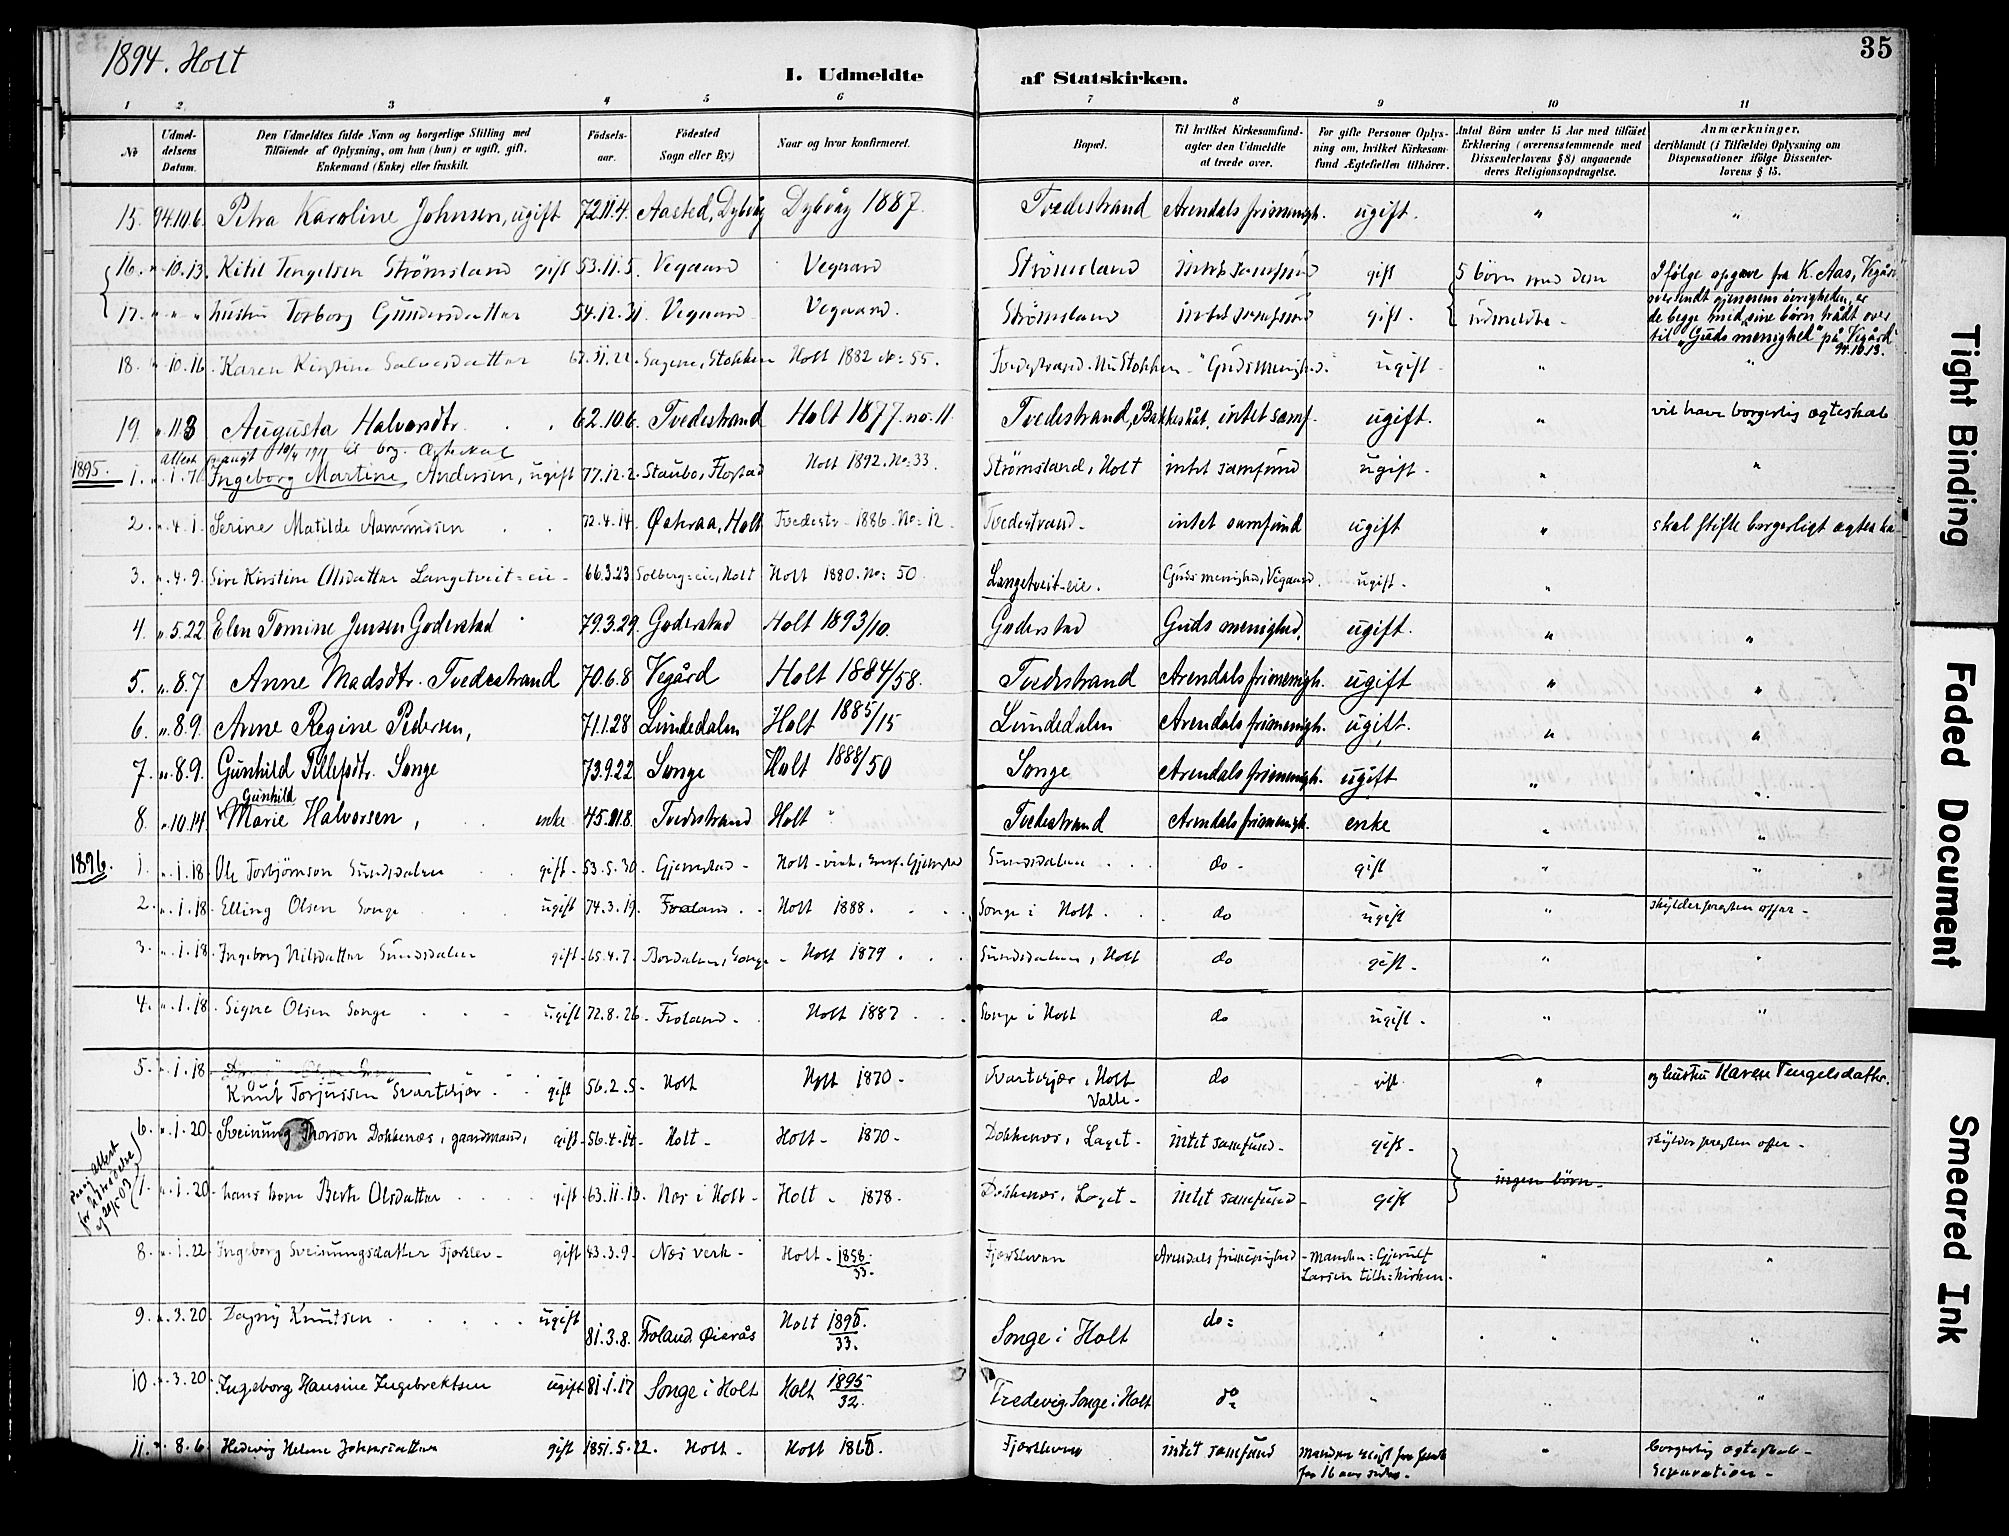 1894. Holt
35
I. Udmeldte af Statskirken.
1 2 3 4 5 6 7 8 9 10 11
No
Udmeldelsens Datum.
Den Udmeldtes fulde Navn og borgerlige Stilling med
Tilføiende af Oplysning, om han (hun) er ugift, gift,
Enkemand (Enke) eller fraskilt.
Fødselsaar.
Fødested
Sogn eller By)
Naar og hvor konfirmeret.
Bopæl.
Til hvilket Kirkesamfund agter den Udmeldte at træde over.
For gifte Personer Oplysning om, hvilket Kirkesamfund Ægtefællen tilhører.
Antal Børn under 15 Aar med tilføiet
Erklæring (overensstemmende med
Dissenterlovens § 8) angaaende
deres Religionsopdragelse.
Anmærkninger,
deriblandt (i Tilfælde) Oplysning om
Dispensationer ifølge Dissenterlovens § 15.
15. 94.10.6. Petra Karoline Johnsen, ugift 72.11.4. Aasted, Dybvåg Dybvåg 1887. Tvedestrand Arendals frimenigh. ugift. " "
16. " 10.13. Kitil Tengelsen Strömsland gift 53.11.5. Vegaard Vegaard Strömsland intet samfund gift 5 börn med dem Ifølge opgave fra K. Aas, Vegår
17. " " " hustru Torborg Gundersdatter 54.12.31. Vegaard Vegaard. Strömsland intet samfund gift. udmeldte. oversendt gjennem övrigheden, er
de begge med sine börn trådt over
til "Guds menighed" på Vegård
94.10.13.
18. " 10.16. Karen Kirstine Salvesdatter Sagene, Stokken Holt 1882 No: 55. Tvedestrand. Nu Stokken "Guds menighed" ugift " "
19. " 11.3 Augusta Halvorsdtr. 62.10.6. Tvedestrand Holt 1877. no. 11. Tvedestrand, intet samf. ugift. " vil have borgerlig ægteskab
attest 10/4 1911 til borg. Ægteskab
1895. 1. " 1. Ingeborg Martine Andersen, ugift 77.12.2. Staubo, Flostad Holt 1892. No: 33. Strömsland, Holt intet samfund ugift. " "
2. " 4.1. Serine Matilde Aamundsen 72.4.14. Østeraa, Holt Tvedestr. 1886. No: 12. Tvedestrand. intet samfund ugift " skal stifte borgerligt ægteska
3. " 4.9. Siri Kirstine Olsdatter Langetveit-eie 66.3.23 Solberg-eie, Holt Holt 1880. No: 50. Langetveit-eie. Guds menighed, Vegaard. ugift. "
4. " 5.22 Elen Tomine Jensen Goderstad 79.3.29. Goderstad Holt 1893/10. Goderstad Guds menighed. ugift. " "
5. " 8.7 Anne Madsdtr. Tvedestrand 70.6.8 Vegård Holt 1884/58. Tvedestrand Arendals frimenigh. ugift " "
6. " 8.9. Anne Regine Pedersen, 71.1.28 Lundedalen Holt 1885/15 Lundedalen Arendals frimenigh. ugift. " "
7. " 8.9. Gunhild Tellefsdtr. Songe 73.9.22 Songe Holt 1888/50 Songe Arendals frimenigh. ugift " "
Gunhild
8. " 10.14. Marie Halvorsen, enke Tvedestrand Holt " Tvedestrand Arendals frimenigh. enke " "
1896. 1. " 1.18. Ole Torbjörnson Sundsdalen gift 53.5.30. Gjerrestad Holt Sundsdalen do gift " "
2. " 1.18. Elling Olsen Songe ugift 74.3.19. Froland Holt 1888. Songe i Holt do ugift " skylder presten offer
3. " 1.18. Ingeborg Nilsdatter Sundsdalen gift 65.4.7. Bordalen, Songe Holt 1879. Sundsdalen, Holt do gift. " "
4. " 1.18. Signe Olsen Songe ugift 72.8.26. Froland Holt 1887. Songe i Holt do ugift. " "
5. " 1.18 Knut Torjussen Svartekjær gift 56.2.5. Holt Holt 1870. Svartekjær, Holt do gift " og hustru Karen Tengelsdatter.
Valle.
6. " 1.20. Sveinung Thorson Dokkenæs, gaardmand, gift 56.4.14. Holt Holt 1870. Dokkenæs, Laget intet samfund gift. ingen börn skylder presten offer
for udtrædelse
7. " 1.20. hans kone Berte Olsdatter gift 63.11.13. Næs i Holt Holt 1878. Dokkenæs, Laget intet samfund gift
8. " 1.22. Ingeborg Sveinungsdatter Fjærklev gift 43.3.9. Næs verk Holt 1858/33. Fjærkleven Arendals frimenighed Manden: Gjerulf " "
Larsen tilh: kirken.
9. " 3.20. Dagny Knutsen ugift 81.3.8. Froland Øierås Holt 1895/33. Songe i Holt do: " " "
10. " 3.20. Ingeborg Hansine Ingebrektsen ugift 81.1.17 Songe i Holt Holt 1895/32. Tredevig Songe i Holt do " "
11. " 8.6. Hedevig Helene Johnsdatter gift 1851.5.22. Holt. Holt Fjærkleven intet samfund Manden reist fra hende " borgerlig ægteskab
for 16 aar siden. Separation
Tight Binding
Faded Document
Smeared Ink